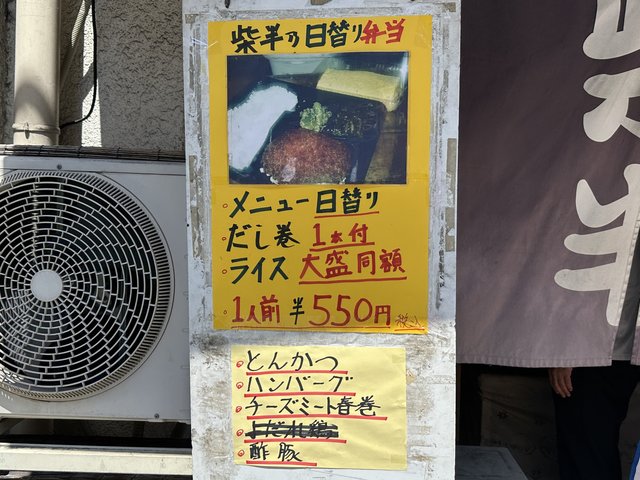 柴半の日替り弁当
メニュー日替り
だし巻 1本付
ライス 大盛同額
1人前 半550円 税込
とんかつ
ハンバーグ
チーズミート春巻
よだれ鶏
酢豚
半